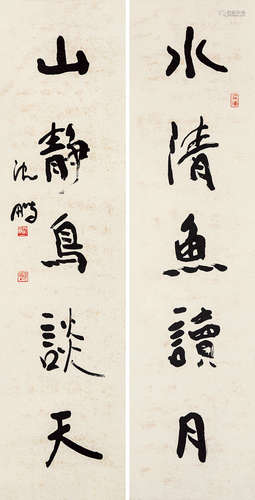 水清魚讀月
山静鳥談天
沈鵬